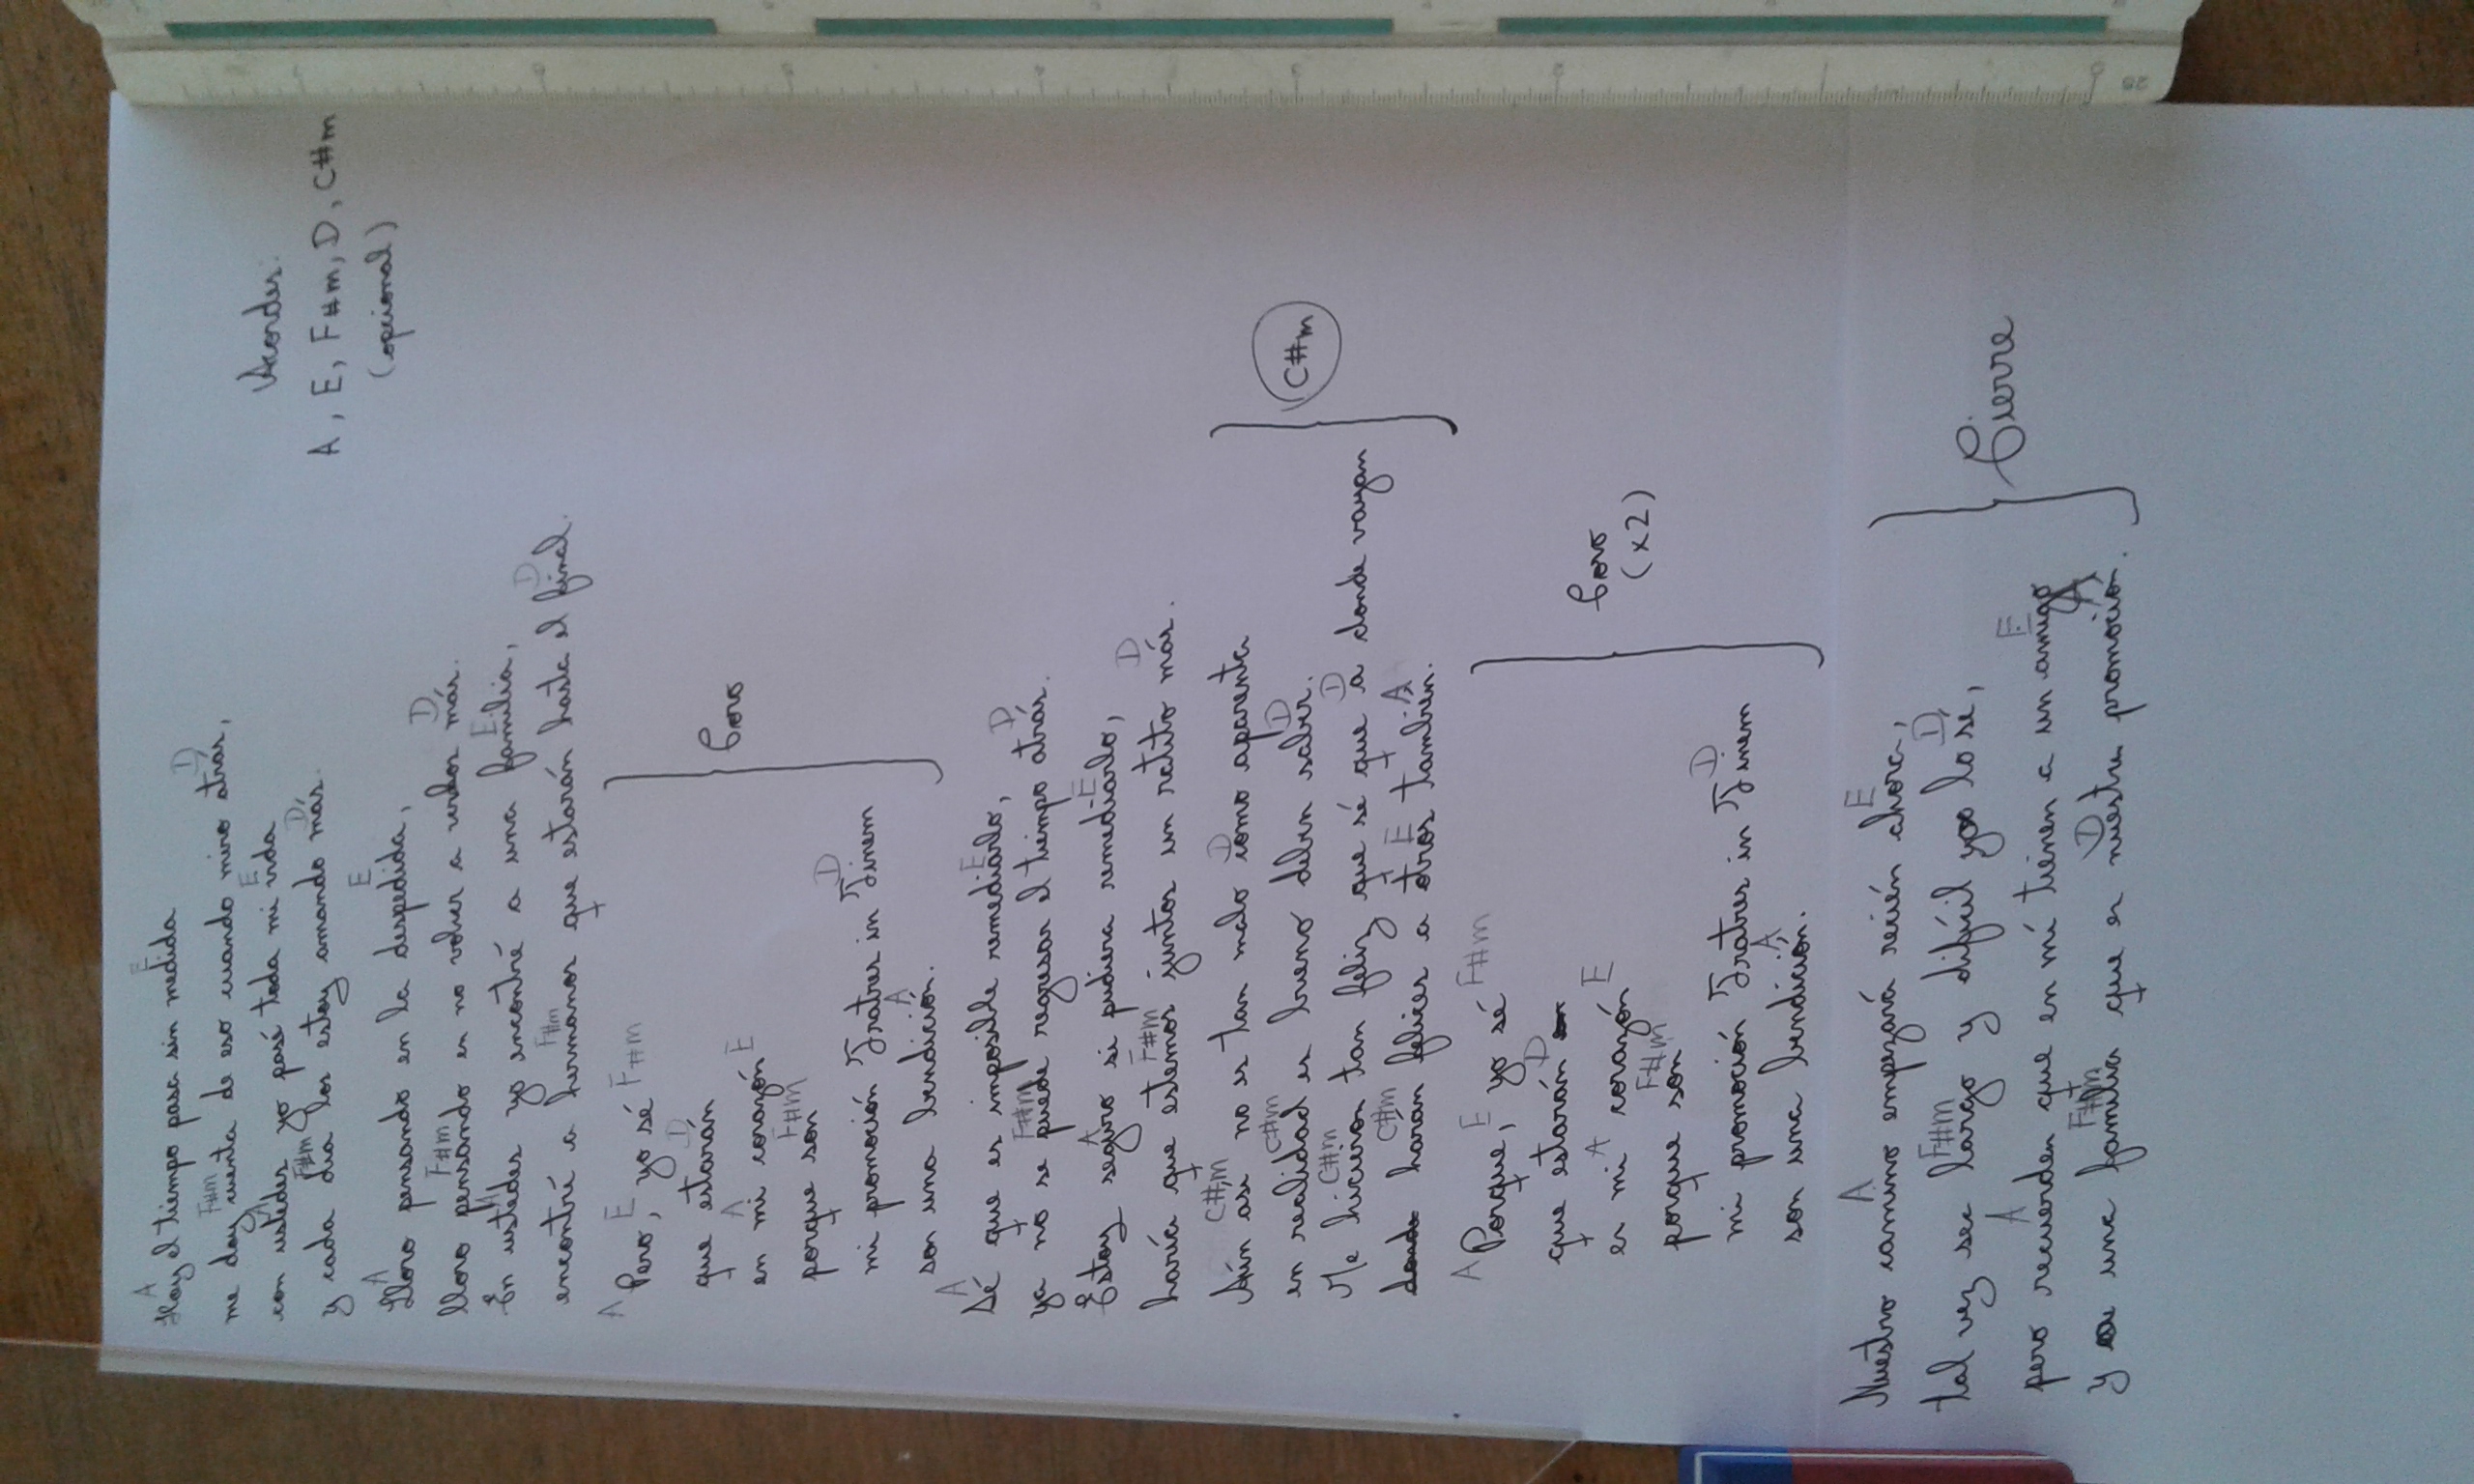 A E
Hoy el tiempo pasa sin medida
F#m D
me doy cuenta de eso cuando miro atrás,
A E
con ustedes yo pasé toda mi vida
F#m D
y cada día los estoy amando más.
Acordes:
A, E, F#m, D, C#m
(opcional)
A E
Lloro pensando en la despedida,
F#m D
lloro pensando en no volver a verlos más.
A E
En ustedes yo encontré a una familia,
F#m D
encontré a hermanos que estarán hasta el final.
A E F#m
Pero, yo sé
D
que estarán
A E
en mi corazón
F#m
porque son
D
mi promoción Fratres in Finem
A
son una bendición.
Coro
A E
Sé que es imposible remediarlo,
F#m D
ya no se puede regresar el tiempo atrás.
A E
Estoy seguro si pudiera remediarlo,
F#m D
haría que estemos juntos un ratito más.
C#m D
Aún así no es tan malo como aparenta
C#m D
en realidad es bueno deben saber.
C#m D
Me hicieron tan feliz que sé que a donde vayan
C#m E A
donde harán felices a otros también.
C#m
A E F#m
Porque, yo sé
D
que estarán en
A E
en mi corazón
F#m
porque son
D
mi promoción Fratres in Finem
A
son una bendición.
Coro
(x2)
A E
Nuestro camino empezará recién ahora,
F#m D
tal vez sea largo y difícil yo lo sé,
A E
pero recuerden que en mí tienen a un amigo
F#m D A
y a una familia que es nuestra promoción.
Cierre
25